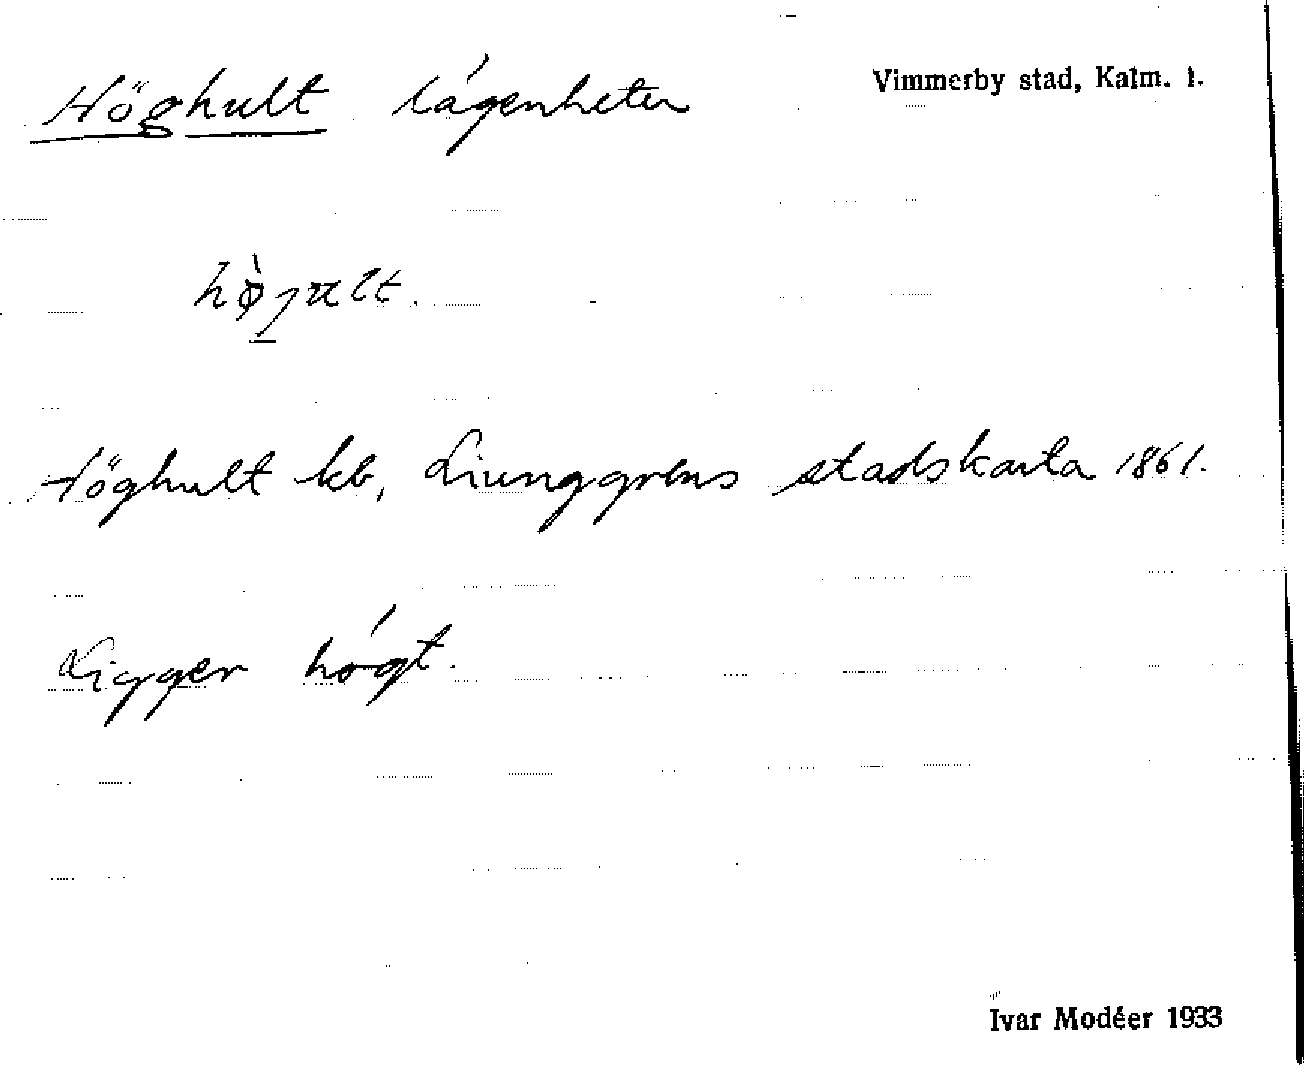 Höghult lägenheter
Vimmerby stad, Kalm. l.
Höghult kb, Liunggrens stadskarta 1861.
Ligger högt.
Ivar Modéer 1933